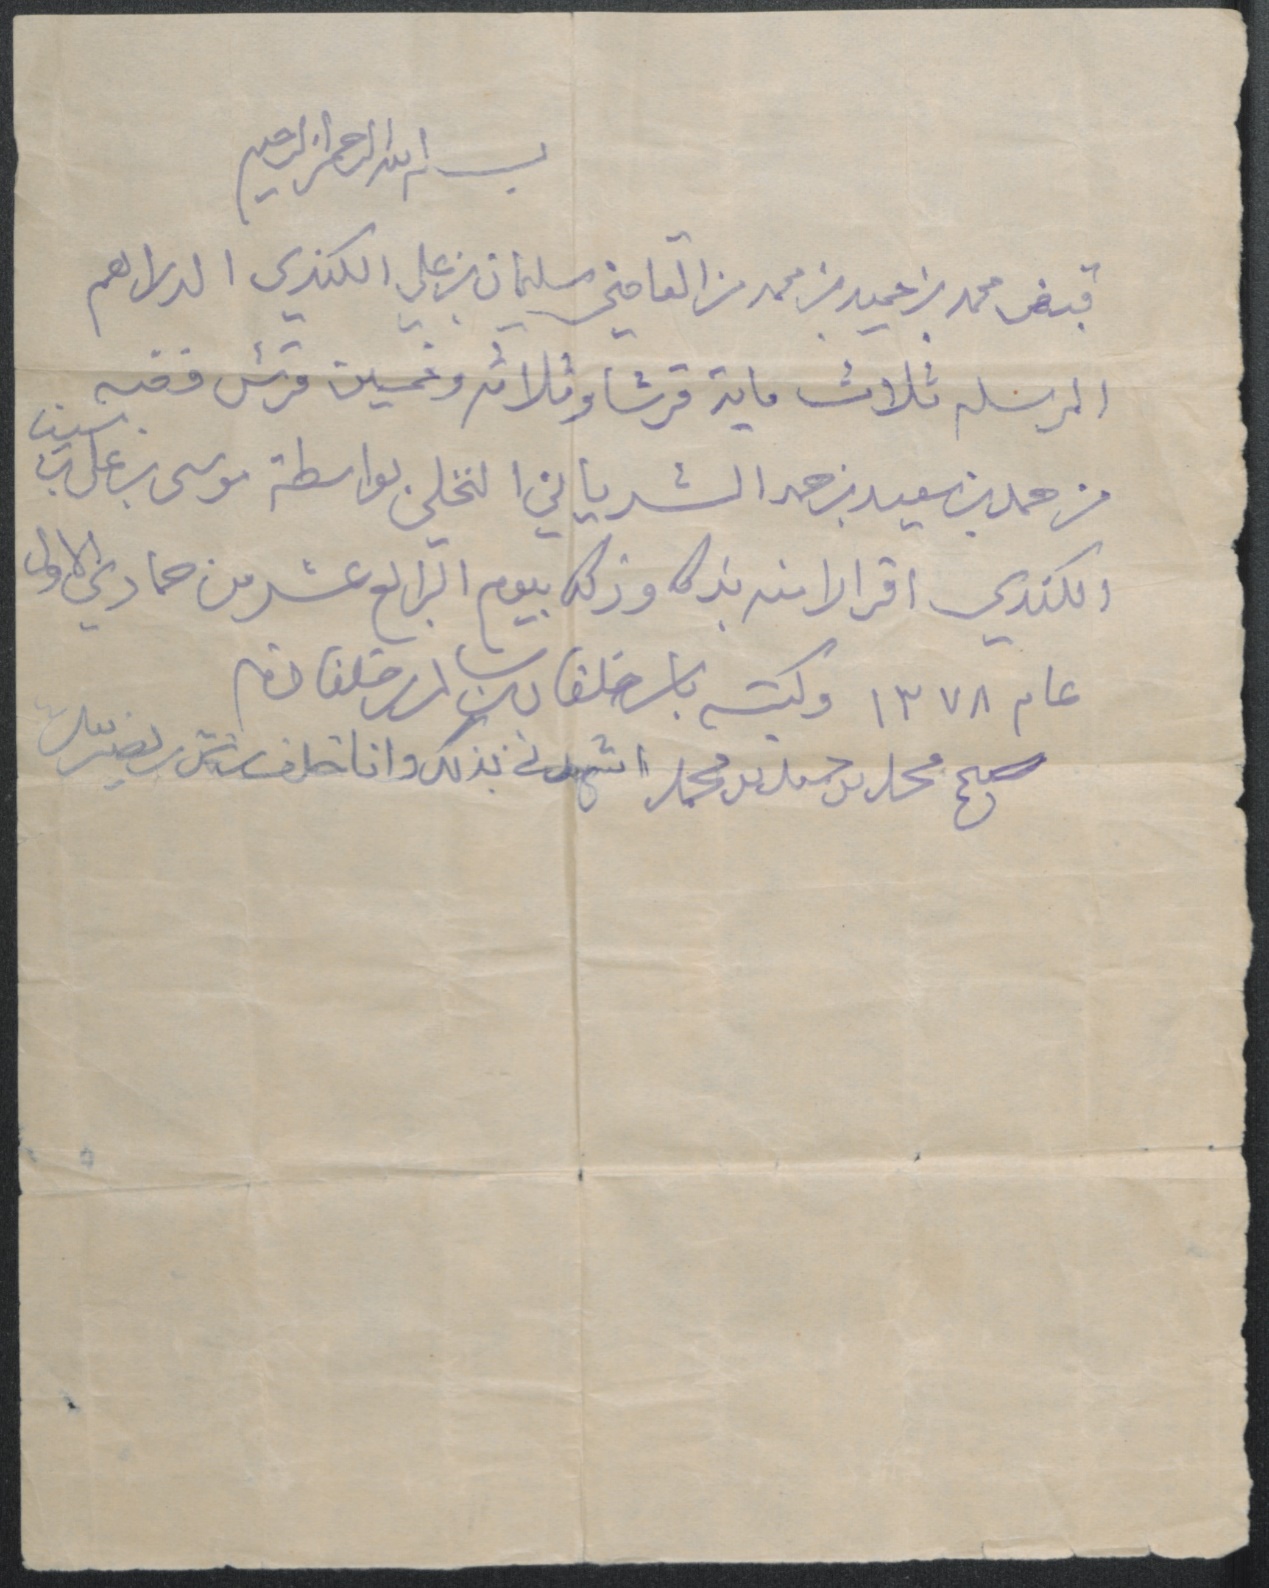 بسم الله الرحمن الرحيم
قبض محمد بن حميد بن محمد من القاضي سليمان بن علي الكندي الدراهم
المرسله ثلاث ماية قرشا وثلاثه وخمسين قرش فضه
من حمد بن سعيد بن حمد الشرياني النخلي بواسطة موسى بن علي بن سيف
الكندي اقرارا منه بذلك وذلك بيوم الرابع عشر من جمادي الاولى
عام ١٣٧٨ وكتبه خلفان بن خلفان
صحيح محمد بن حميد بن محمد اشهدني بذلك وانا خلف بن بيده